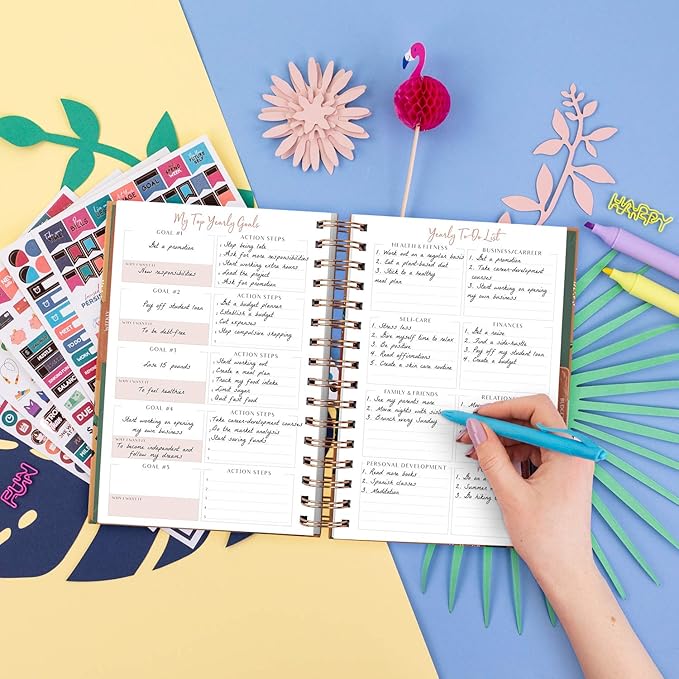 My Top Yearly Goals
GOAL #1
Get a promotion
WHY I WANT IT
New responsibilities
ACTION STEPS
Stop being late
Ask for more responsibilities
Start working extra hours
Lead the project
Ask for a promotion
GOAL #2
Pay off student loan
WHY I WANT IT
To be debt-free
ACTION STEPS
Get a budget planner
Establish a budget
Cut expenses
Stop compulsive shopping
GOAL #3
Lose 15 pounds
WHY I WANT IT
To feel healthier
ACTION STEPS
Start working out
Create a meal plan
Track my food intake
Limit sugar
Quit fast food
GOAL #4
Start working on opening
my own business
WHY I WANT IT
To become independent and
follow my dreams
ACTION STEPS
Take career-development courses
Do the market analysis
Start saving funds
GOAL #5
WHY I WANT IT
ACTION STEPS
Yearly To-Do List
HEALTH & FITNESS
1. Work out on a regular basis
2. Eat a plant-based diet
3. Stick to a healthy
meal plan
BUSINESS/CAREER
1. Get a promotion
2. Take career-development
courses
3. Start working on opening
my own business
SELF-CARE
1. Stress less
2. Give myself time to relax
3. Be positive
4. Read affirmations
5. Create a skin care routine
FINANCES
1. Get a raise
2. Find a side-hustle
3. Pay off my student loan
4. Create a budget
FAMILY & FRIENDS
1. See my parents more
2. Movie nights with
3. Brunch every Sunday
PERSONAL DEVELOPMENT
1. Read more books
2. Spanish classes
3. Meditation
1. Go on
2. Summer
3. Do hiking
HAPPY
FUN
GOAL
FUTURE
SELF
BILLS
MEETING
TO DO
BALANCE
DUE